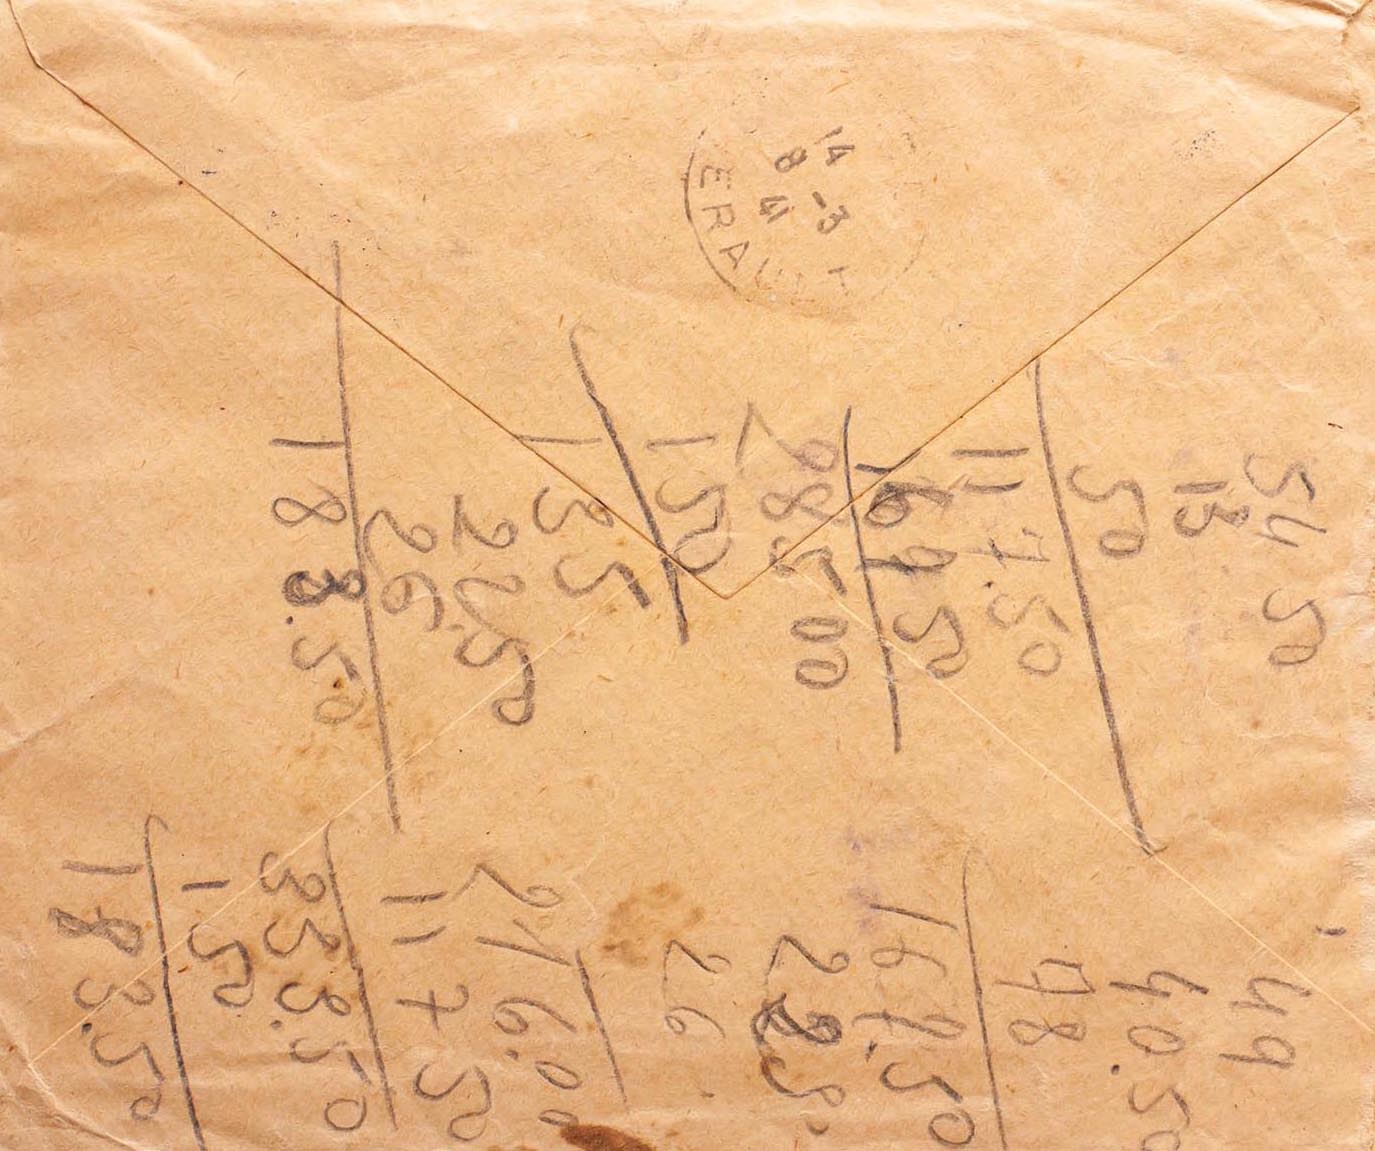 14 -3
8 41
ERAULT
54 50
13
50
117.50
167 50
285 00
150
135
22.50
26
183.50
49
40.50
78
167.50
22.5
26
216.00
117 50
333.50
150
183.50